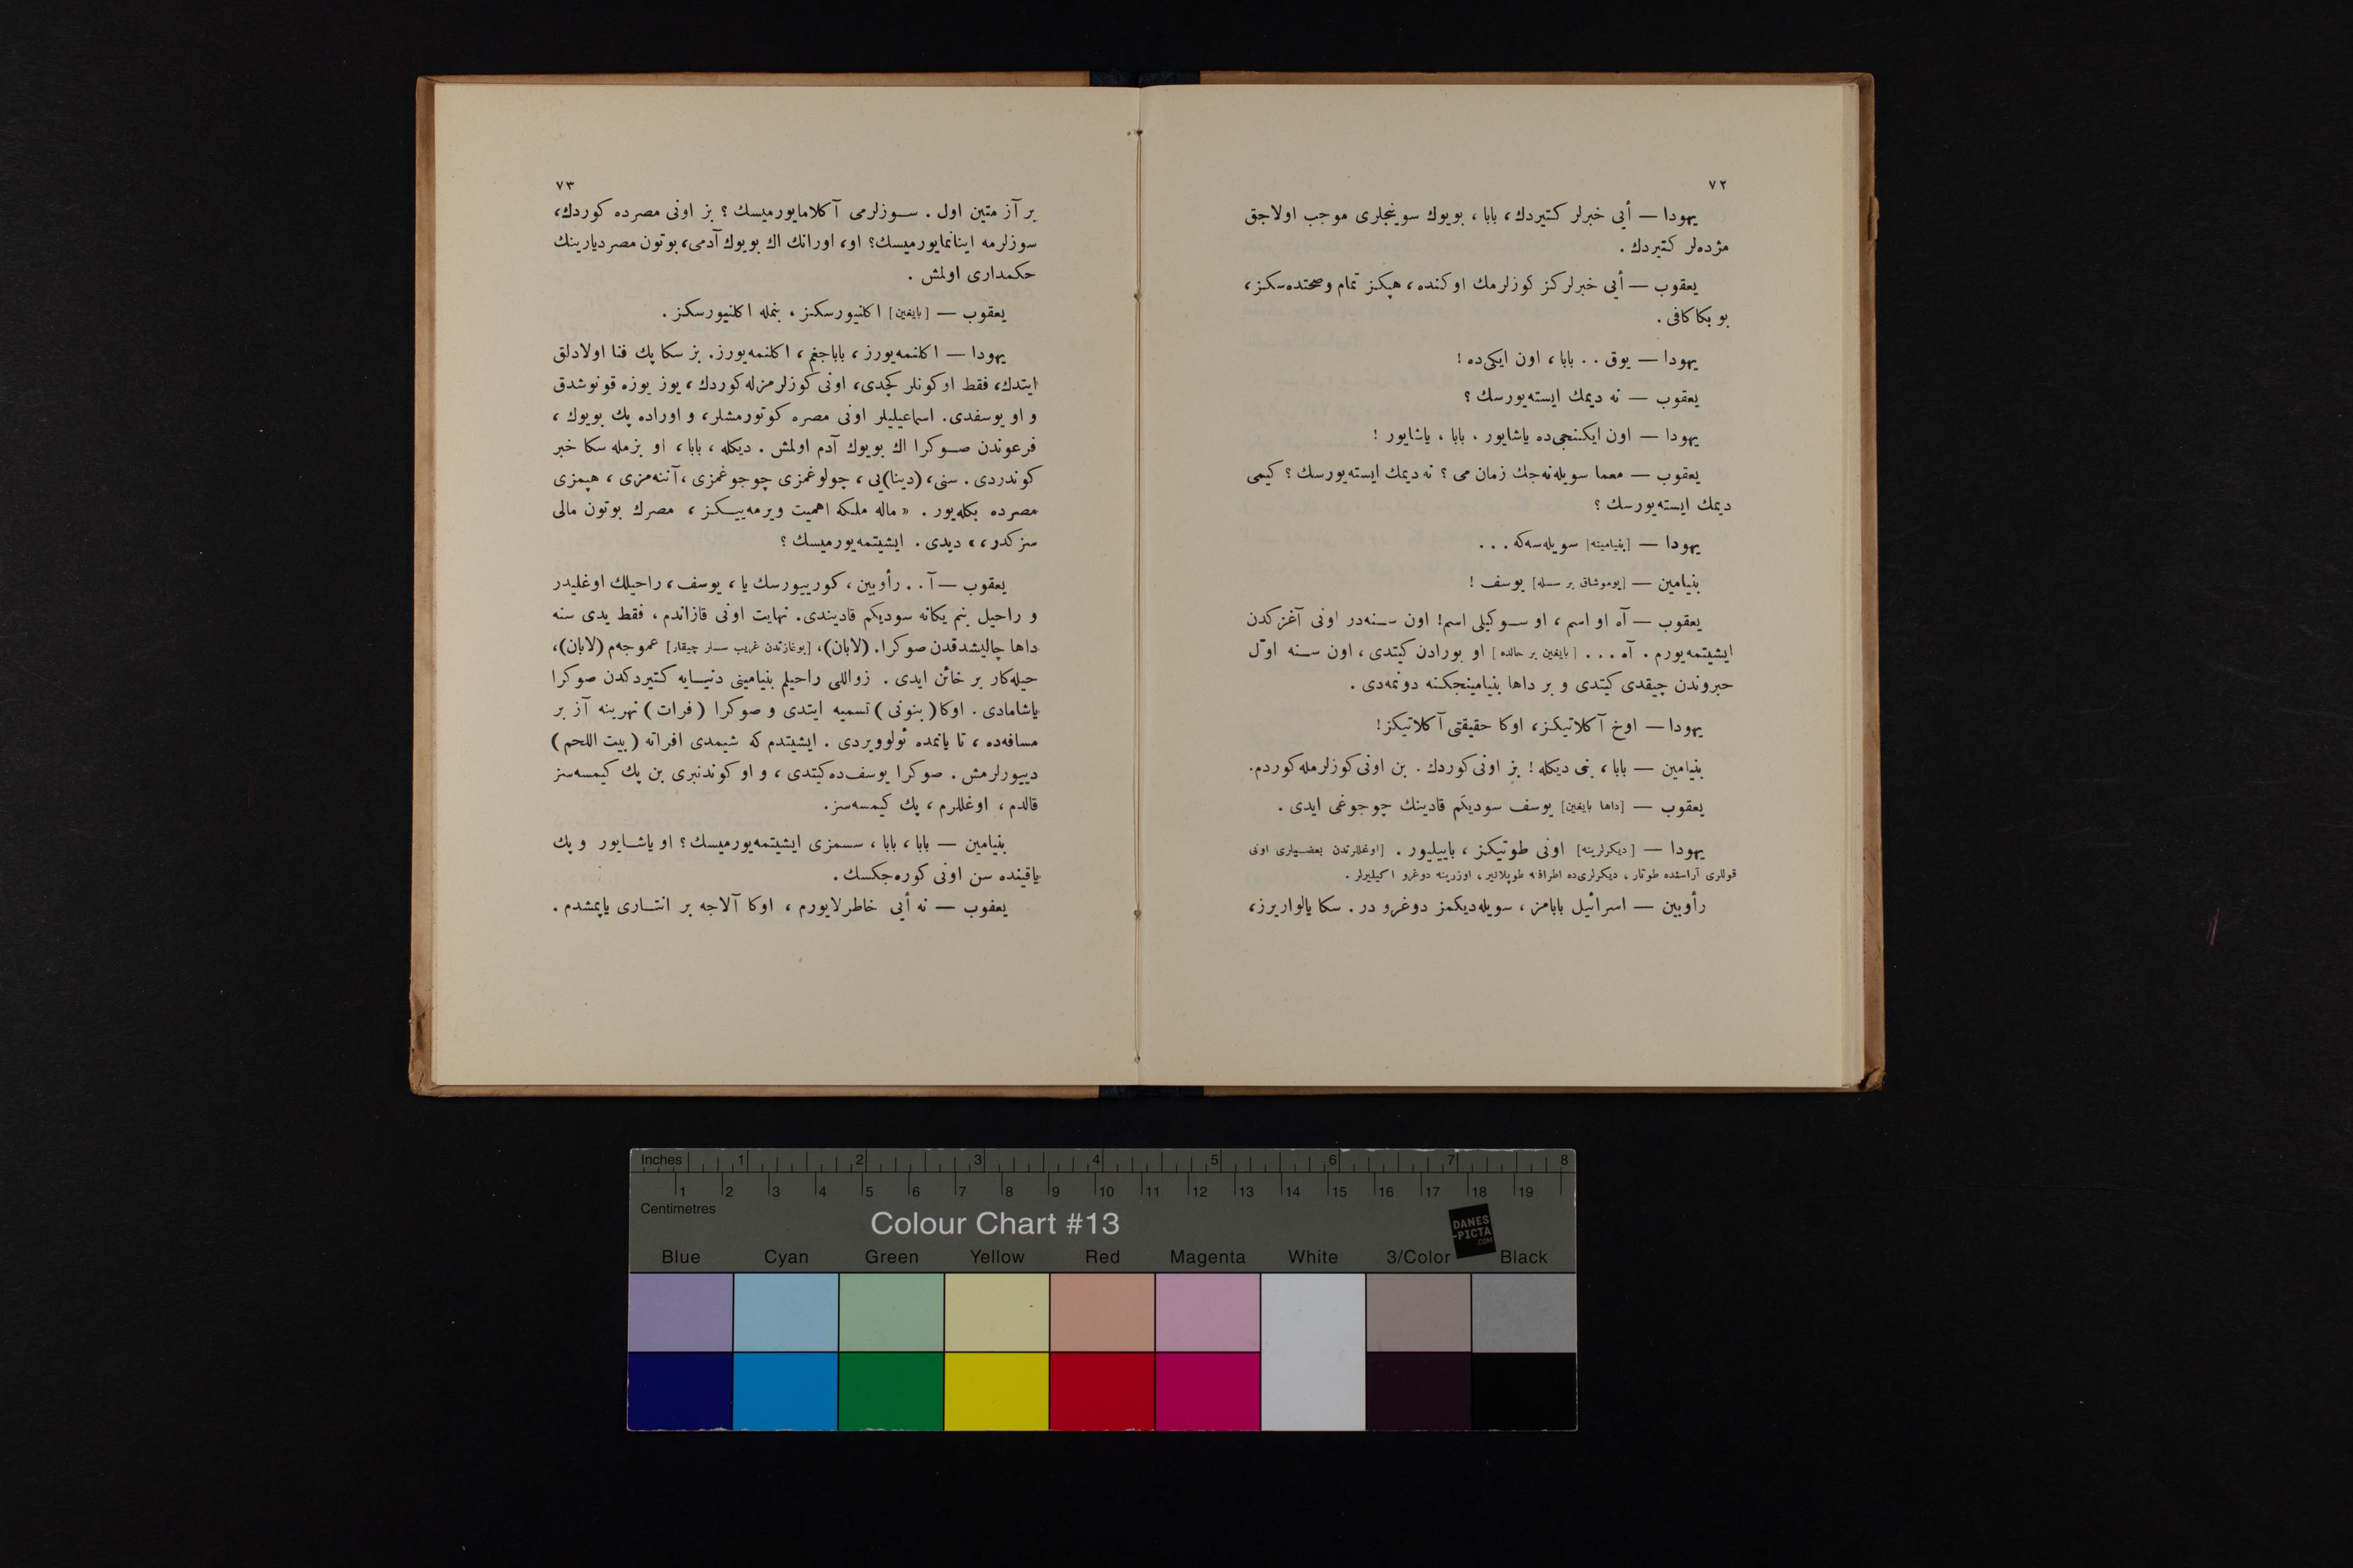 ٧٢
يهودا — أيى خبرلر كتيردك، بابا، بويوك سوينجلرى موجب اولاجق
مژده‌لر كتيردك.
يعقوب — أيى خبرلركز كوزلرمك اوكنده، هپكز تمام وصحتده‌سكز،
بو بكا كافى.
يهودا — يوق . . بابا، اون ايكى‌ده!
يعقوب — نه ديمك ايسته‌يورسك؟
يهودا — اون ايكنجى‌ده ياشايور، بابا، ياشايور!
يعقوب — معما سويله‌نه‌جك زمان مى؟ نه ديمك ايسته‌يورسك؟ كيمى
ديمك ايسته‌يورسك؟
يهودا — [بنيامينه] سويله‌سه‌كه . . .
بنيامين — [يوموشاق بر سسله] يوسف!
يعقوب — آه او اسم، او سوكيلى اسم! اون سنه‌در اونى آغزكدن
ايشيتمه‌يورم. آه . . . [بايغين بر حالده] او بورادن كيتدى، اون سنه اوّل
حبروندن چيقدى كيتدى و بر داها بنيامينجكنه دونمه‌دى.
يهودا — اوخ آكلاتيكز، اوكا حقيقتى آكلاتيكز!
بنيامين — بابا، بنى ديكله! بز اونى كوردك. بن اونى كوزلرمله كوردم.
يعقوب — [داها بايغين] يوسف سوديكم قادينك چوجوغى ايدى.
يهودا — [ديكرلرينه] اونى طوتيكز، باييليور. [اوغللرندن بعضيلرى اونى
قوللرى آراسنده طوتار، ديكرلرى‌ده اطرافنه طوپلانير، اوزرينه دوغرو اكيليرلر.
رأوبين — اسرائيل بابامز، سويله‌ديكمز دوغرو در. سكا يالواريرز،
٧٣
بر آز متين اول. سوزلرمى آكلامايورميسك؟ بز اونى مصرده كوردك،
سوزلرمه اينانمايورميسك؟ او، اورانك اك بويوك آدمى، بوتون مصر ديارينك
حكمدارى اولمش.
يعقوب — [بايغين] اكلنيورسكز، بنمله اكلنيورسكز.
يهودا — اكلنمه‌يورز، باباجغم، اكلنمه‌يورز. بز سكا پك فنا اولادلق
ايتدك، فقط اوكونلر كچدى، اونى كوزلرمزله كوردك، يوز يوزه قونوشدق
و او يوسفدى. اسماعيليلر اونى مصره كوتورمشلر، و اوراده پك بويوك،
فرعوندن صوكرا اك بويوك آدم اولمش. ديكله، بابا، او بزمله سكا خبر
كوندردى. سنى، (دينا)يى، چولوغمزى چوجوغمزى، آننه‌مزى، هپمزى
مصرده بكله‌يور. « ماله ملكه اهميت ويرمه‌ييكز، مصرك بوتون مالى
سزكدر، » ديدى. ايشيتمه‌يورميسك؟
يعقوب — آ . . رأوبين، كورييورسك يا، يوسف، راحيلك اوغليدر
و راحيل بنم يكانه سوديكم قاديندى. نهايت اونى قازاندم، فقط يدى سنه
داها چاليشدقدن صوكرا. (لابان)، [بوغازندن غريب سسلر چيقار] عموجه‌م (لابان)،
حيله‌كار بر خائن ايدى. زواللى راحيلم بنيامينى دنيايه كتيردكدن صوكرا
ياشامادى. اوكا (بنونى) تسميه ايتدى و صوكرا (فرات) نهرينه آز بر
مسافه‌ده، تا يانمده ئولوويردى. ايشيتدم كه شيمدى افراته (بيت اللحم)
دييورلرمش. صوكرا يوسف‌ده كيتدى، و او كوندنبرى بن پك كيمسه‌سز
قالدم، اوغللرم، پك كيمسه‌سز.
بنيامين — بابا، بابا، سسمزى ايشيتمه‌يورميسك؟ او ياشايور و پك
ياقينده سن اونى كوره‌جكسك.
يعقوب — نه أيى خاطرلايورم، اوكا آلاجه بر انتارى ياپمشدم.
Inches 1 2 3 4 5 6 7 8
1 2 3 4 5 6 7 8 9 10 11 12 13 14 15 16 17 18 19
Centimetres
Colour Chart #13
DANES
-PICTA
.COM
Blue Cyan Green Yellow Red Magenta White 3/Color Black